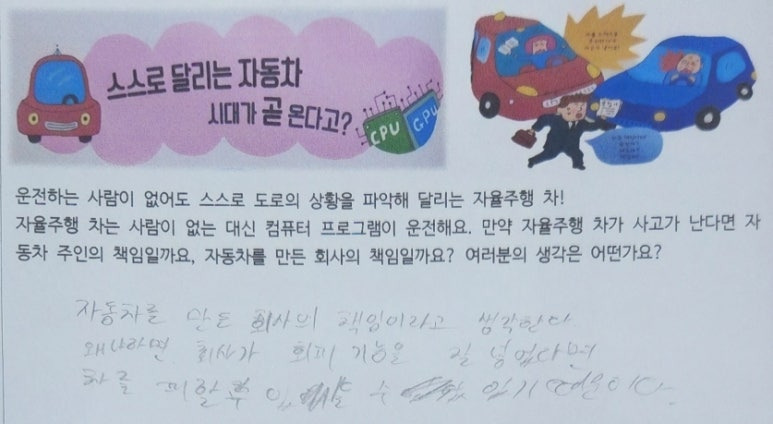 스스로 달리는 자동차
시대가 곧 온다고?
CPU GPU
운전하는 사람이 없어도 스스로 도로의 상황을 파악해 달리는 자율주행 차!
자율주행 차는 사람이 없는 대신 컴퓨터 프로그램이 운전해요. 만약 자율주행 차가 사고가 난다면 자
동차 주인의 책임일까요, 자동차를 만든 회사의 책임일까요? 여러분의 생각은 어떤가요?
자동차를 만든 회사의 책임이라고 생각한다
왜냐하면 회사가 회피 기능을 잘 넣었다면
차를 피할 수 있기 때문이다.